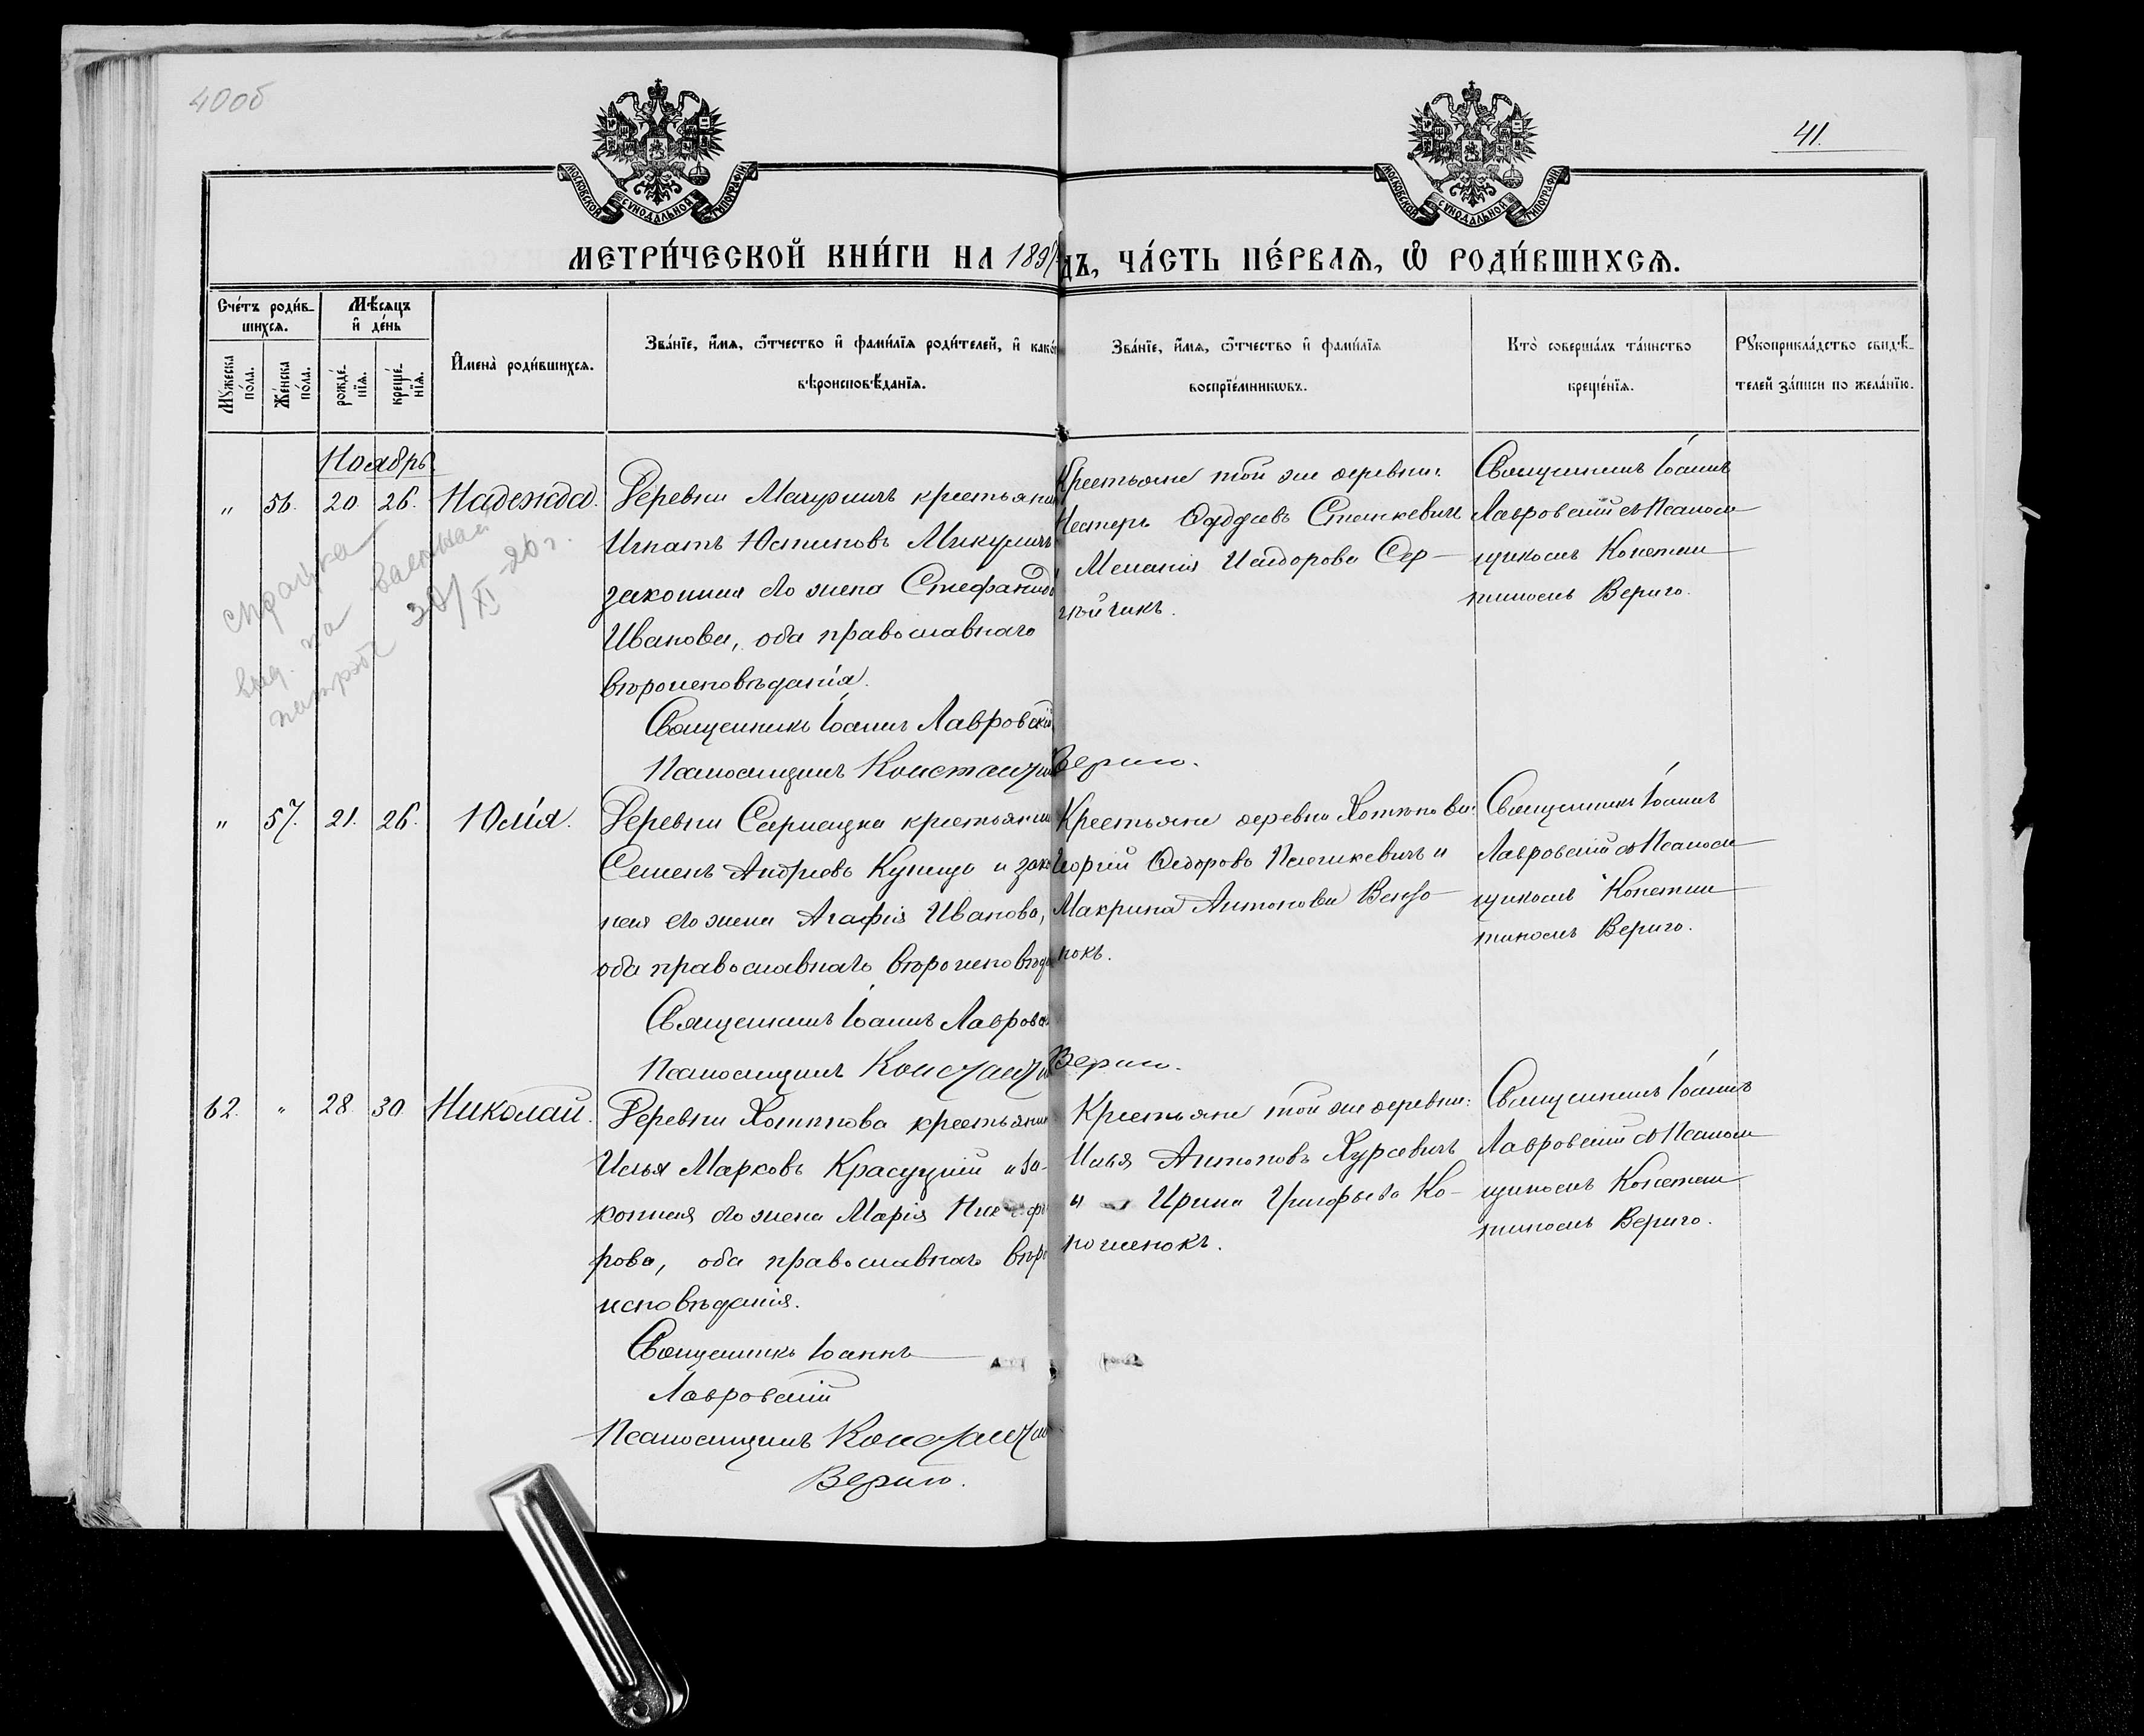 40об
41.
МОСКОВСКОЙ СѴНОДАЛЬНОЙ ТИПОГРАФІИ
МОСКОВСКОЙ СѴНОДАЛЬНОЙ ТИПОГРАФІИ
МЕТРИ́ЧЕСКОЙ КНИ́ГИ НА 189
ДЪ, ЧА́СТЬ ПЕ́РВАЯ, Ѡ҆ РОДИ́ВШИХСЯ.
Сче́тъ роди́в-
шихся.
Мѣсяцъ
и҆ де́нь
Мꙋ́жеска
по́ла.
Же́нска
по́ла.
рожде́-
нїѧ.
креще́-
нїѧ.
И҆мена̀ роди́вшихся.
Зва́нїе, и҆́мя, ѻ҆́тчество и҆ фами́лїя роди́телей, и҆ како́
вѣроисповѣ́данїя.
Зва́нїе, и҆́мя, ѻ҆́тчество и҆ фами́лїя
воспрїе́мникѡвъ.
Кто̀ соверша́лъ та́инство
креще́нїя.
Рꙋкоприкла́дство свидѣ́-
телей за́писи по жела́нїю.
Ноябрь.
" 56. 20. 26. Надежда.
Деревни крестьянин
Игнатъ Юстиновъ Микуличъ
законная его жена Стефанида
Иванова, оба православнаго
вѣроисповѣданія.
Священникъ Іоаннъ Лавровскій
Псаломщикъ Константин
Крестьяне той же деревни:
Нестеръ Станкевичъ
Меланія Исидорова Сер-
гѣйчикъ.
Верига.
Священникъ Іоаннъ
Лавровскій съ Псалом
щикомъ Констан
тиномъ Верига.
справка
выд. на
30/XI 20 г.
" 57. 21. 26. Юлія.
Деревни крестьянин
Семенъ Андреевъ Куница и зако
ная его жена Агафія Иванова,
оба православнаго вѣроисповѣд
Священникъ Іоаннъ Лавровск
Псаломщикъ Константин
Крестьяне деревни Хотѣнова:
Георгій Ѳедоровъ и
Макрина Антонова
нокъ.
Верига.
Священникъ Іоаннъ
Лавровскій съ Псалом
щикомъ Констан
тиномъ Верига.
62. " 28. 30. Николай.
Деревни Хотѣнова крестьянин
Илья Марковъ Красуцкій и за-
конная его жена Марія Никифо
рова, оба православнаго вѣро
исповѣданія.
Священникъ Іоаннъ
Лавровскій
Псаломщикъ Константин
Верига.
Крестьяне той же деревни:
Илья Антоновъ Хурсевичъ
и Ирина Григорьева Ко-
нопленокъ.
Священникъ Іоаннъ
Лавровскій съ Псалом
щикомъ Констан
тиномъ Верига.